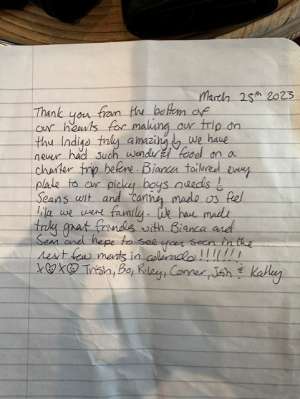 March 25th 2023
Thank you from the bottom of
our hearts for making our trip on
the Indigo truly amazing & we have
never had such wonderful food on a
charter trip before. Bianca tailored every
plate to our picky boys needs &
Seans wit and caring made us feel
like we were family. We have made
truly great friends with Bianca and
Sean and hope to see you soon in the
next few months in colorado !!!!!!!
XOXO Trish, Bo, Riley, Conner, Josh & Kalley